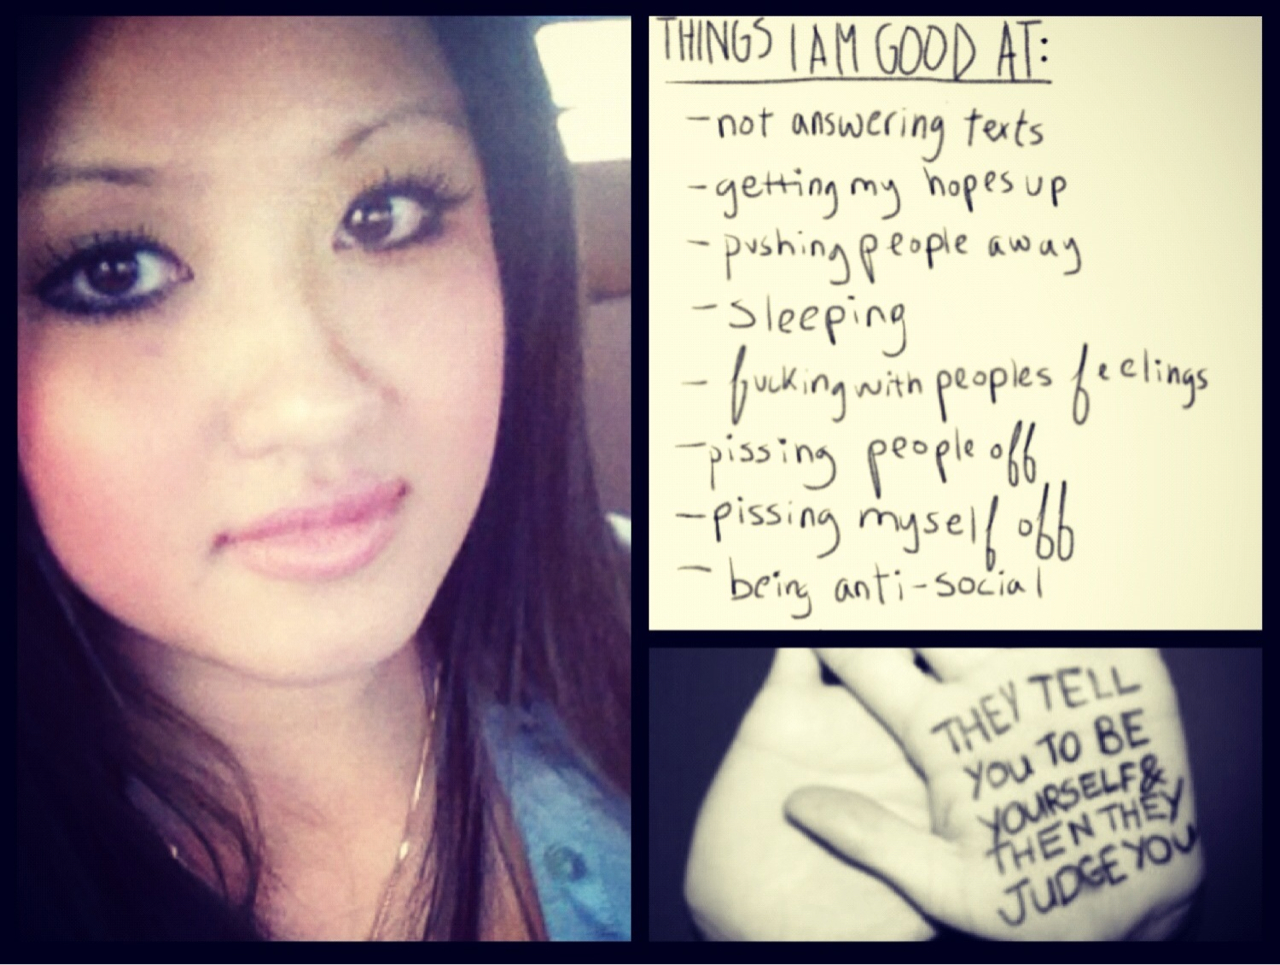 THINGS I AM GOOD AT:
-not answering texts
-getting my hopes up
-pushing people away
-sleeping
-fucking with peoples feelings
-pissing people off
-pissing myself off
-being anti-social
THEY TELL
YOU TO BE
YOURSELF&
THEN THEY
JUDGE YOU